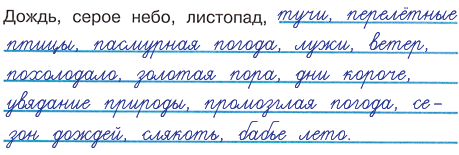 Дождь, серое небо, листопад, тучи, перелётные
птицы, пасмурная погода, лужи, ветер,
похолодало, золотая пора, дни короче,
увядание природы, промозглая погода, се-
зон дождей, слякоть, бабье лето.